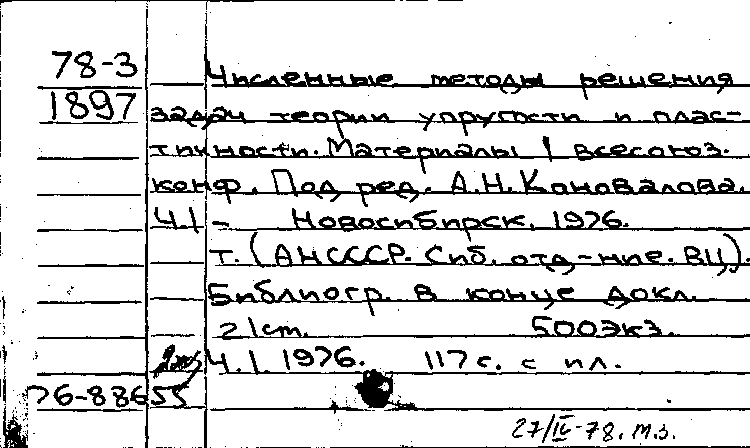 78-3 Численные методы решения
1897 задач теории упругости и плас-
тичности. Материалы I всесоюз.
конф. Под ред. А.Н. Коновалова.
Ч.1 - Новосибирск. 1976.
т. (АНСССР. Сиб. отд-ние. ВЦ).
Библиогр. в конце докл.
21cm. 500экз.
Ч.1. 1976. 117с. с ил.
76-88655
27/IV-78. т.з.